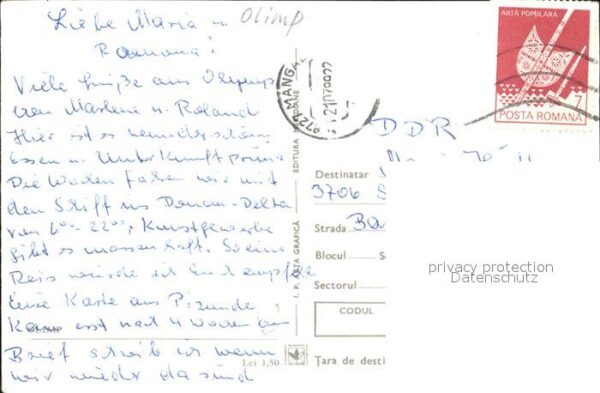 Liebe Maria u.
Olimp
Ramona!
Viele Grüße aus Olymp
von Marlene u. Roland
Hier ist es wunderschön
Essen u. Unterkunft prima
Die Woche fahren wir mit
den Schiff ins Donau-Delta
von 6⁰⁰-22⁰⁰, Kunstgewerbe
gibt es massenhaft. So eine
Reis würde ich Euch empfe
Eure Karte aus Pizunda
Kam erst nach 4 Wochen an
Brief schreib ich wenn
wir wieder da sind
OLIMP
Lei 1,50
EDITURA
I. P. ARTA GRAFICĂ
8727 MANGA
21.07.9922
ARTĂ POPULARĂ
7
POSTA ROMANA
DDR
Destinatar
3706
Strada
Ba
Blocul
Sc
Sectorul
CODUL
Țara de desti
privacy protection
Datenschutz